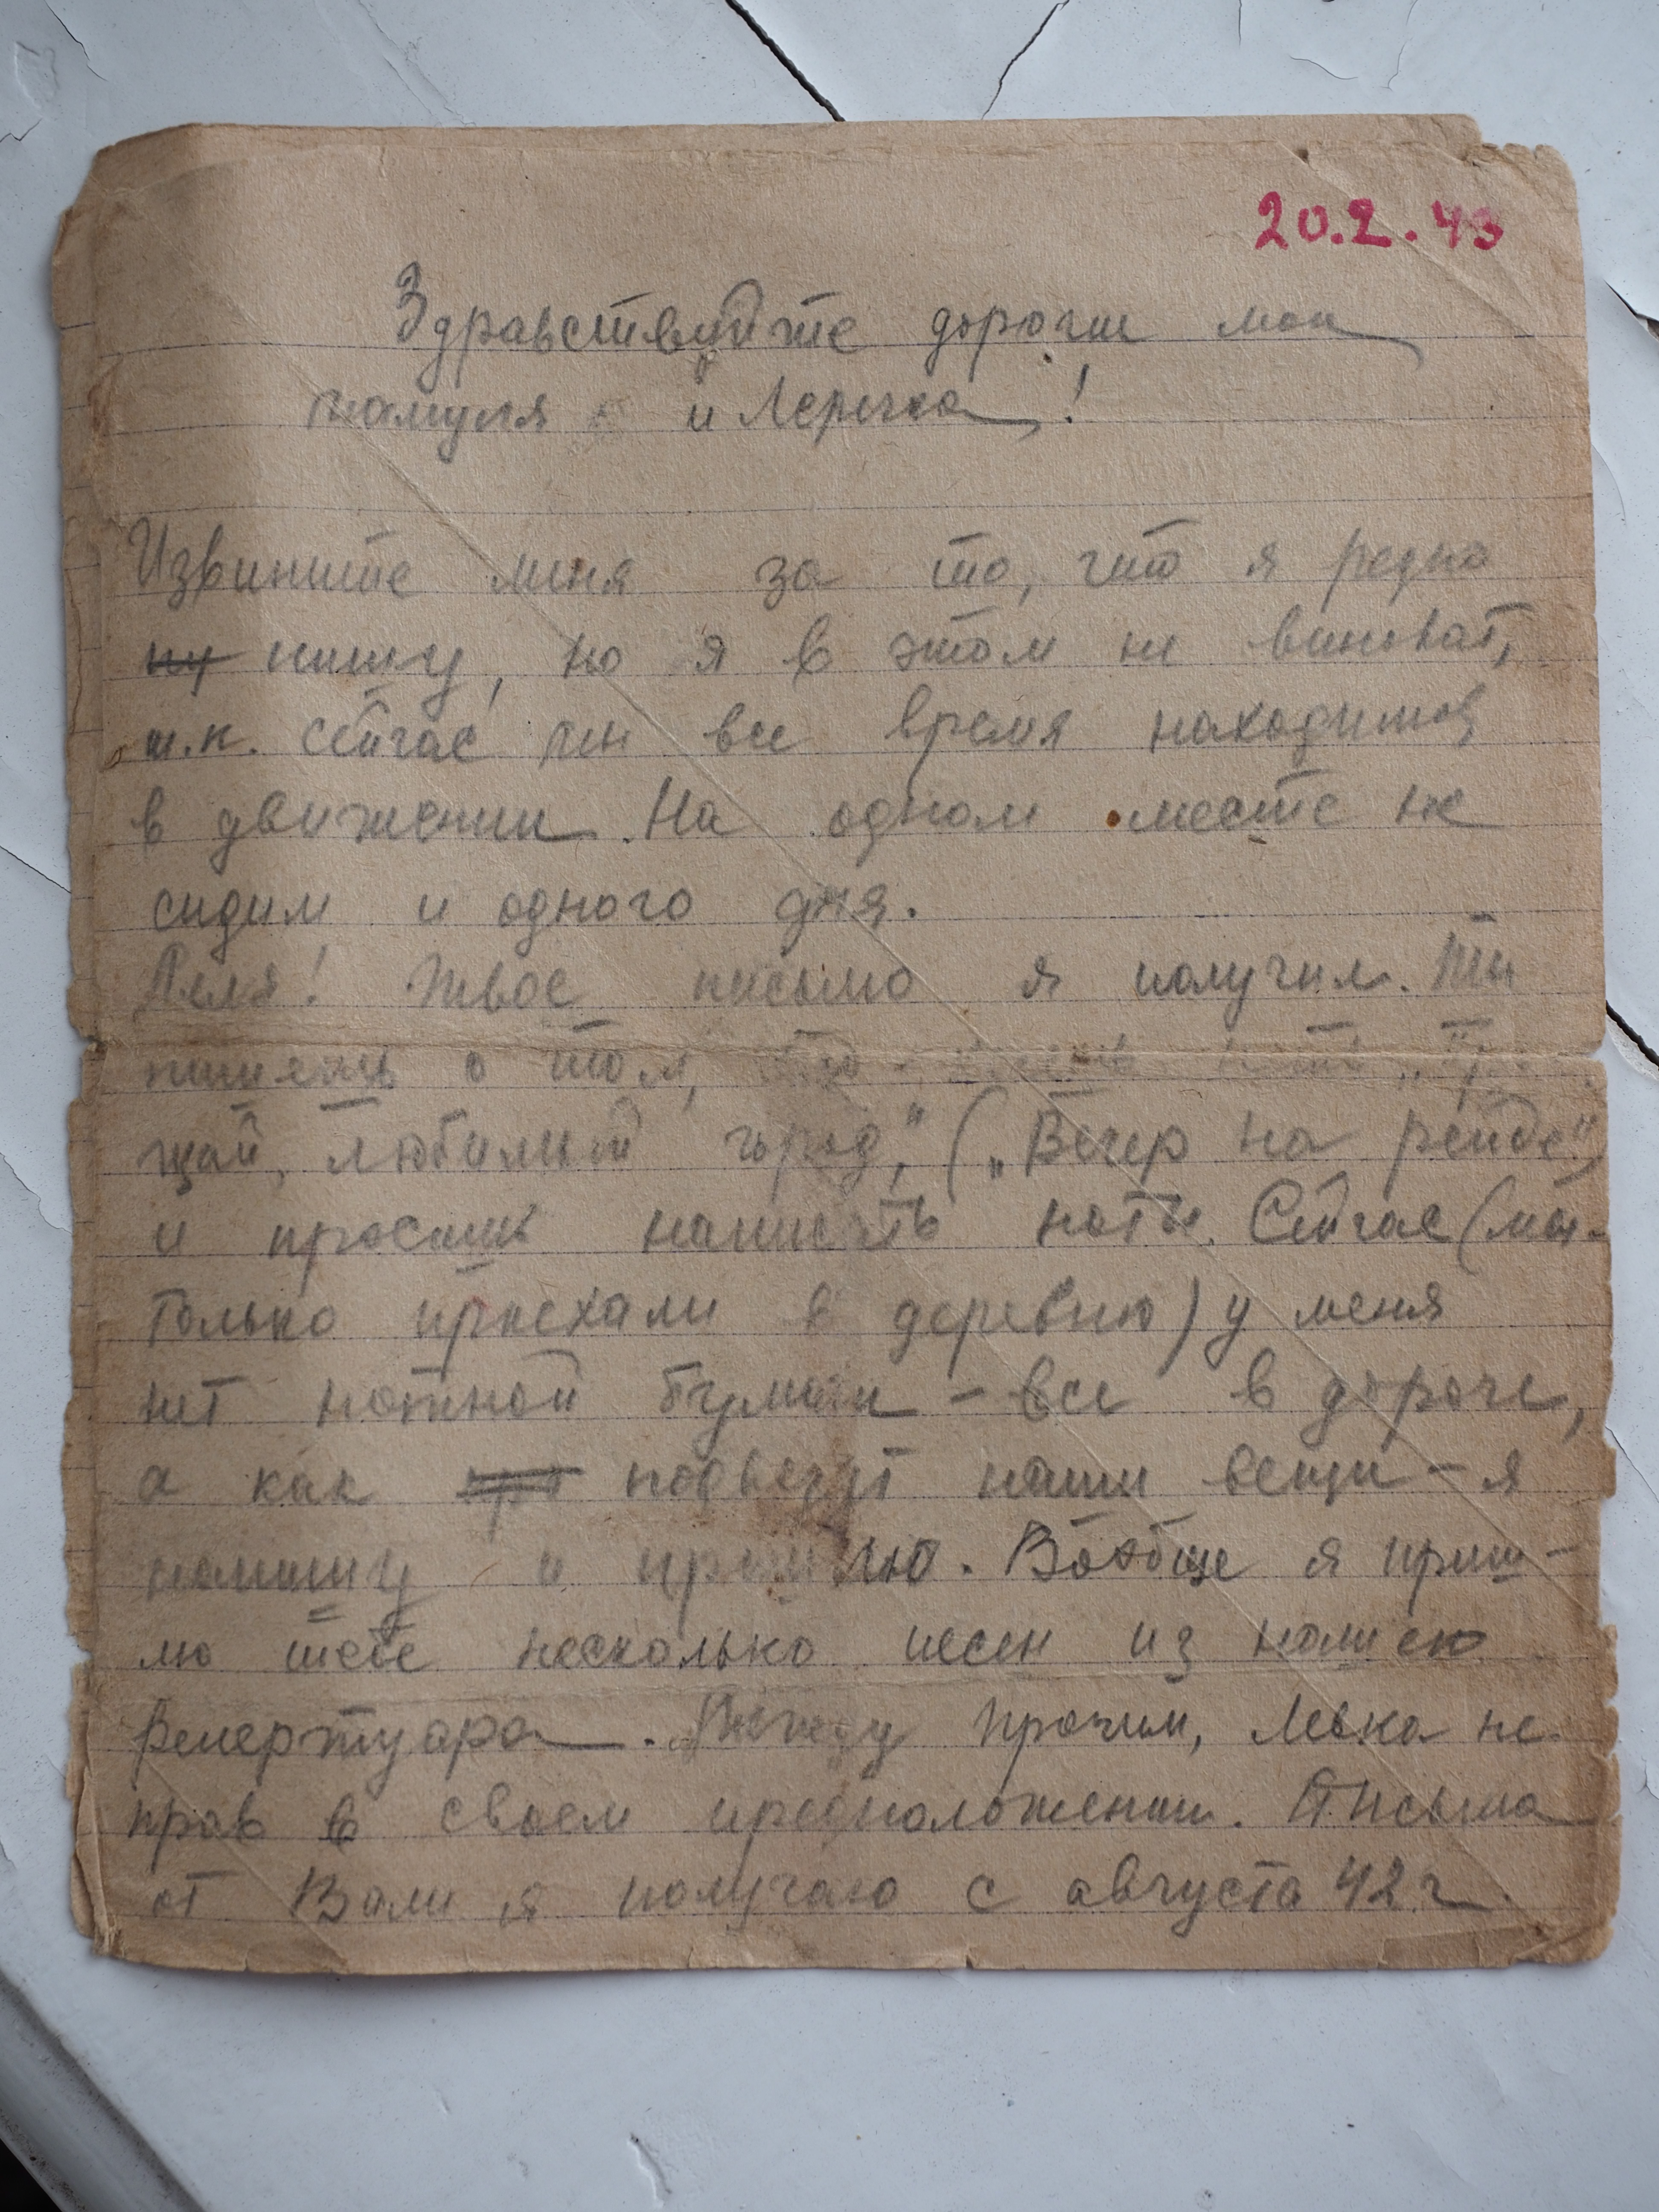 20.2.43
Здравствуйте дорогие мои
мамуля и Лерочка!
Извините меня за то, что я редко
пишу, но я в этом не виноват,
т.к. сейчас мы все время находимся
в движении. На одном месте не
сидим и одного дня.
Леля! Твое письмо я получил. Ты
пишешь о том, что
щай, любимый город," („Вечер на рейде")
и просишь написать ноты. Сейчас (мы
только приехали в деревню) у меня
нет нотной бумаги – все в дороге,
а как подвезут наши вещи – я
напишу и пришлю. Вообще я приш-
лю тебе несколько песен из нашего
репертуара. Между прочим, Левка не
прав в своем предположении. Письма
от Вали я получаю с августа 42 г.